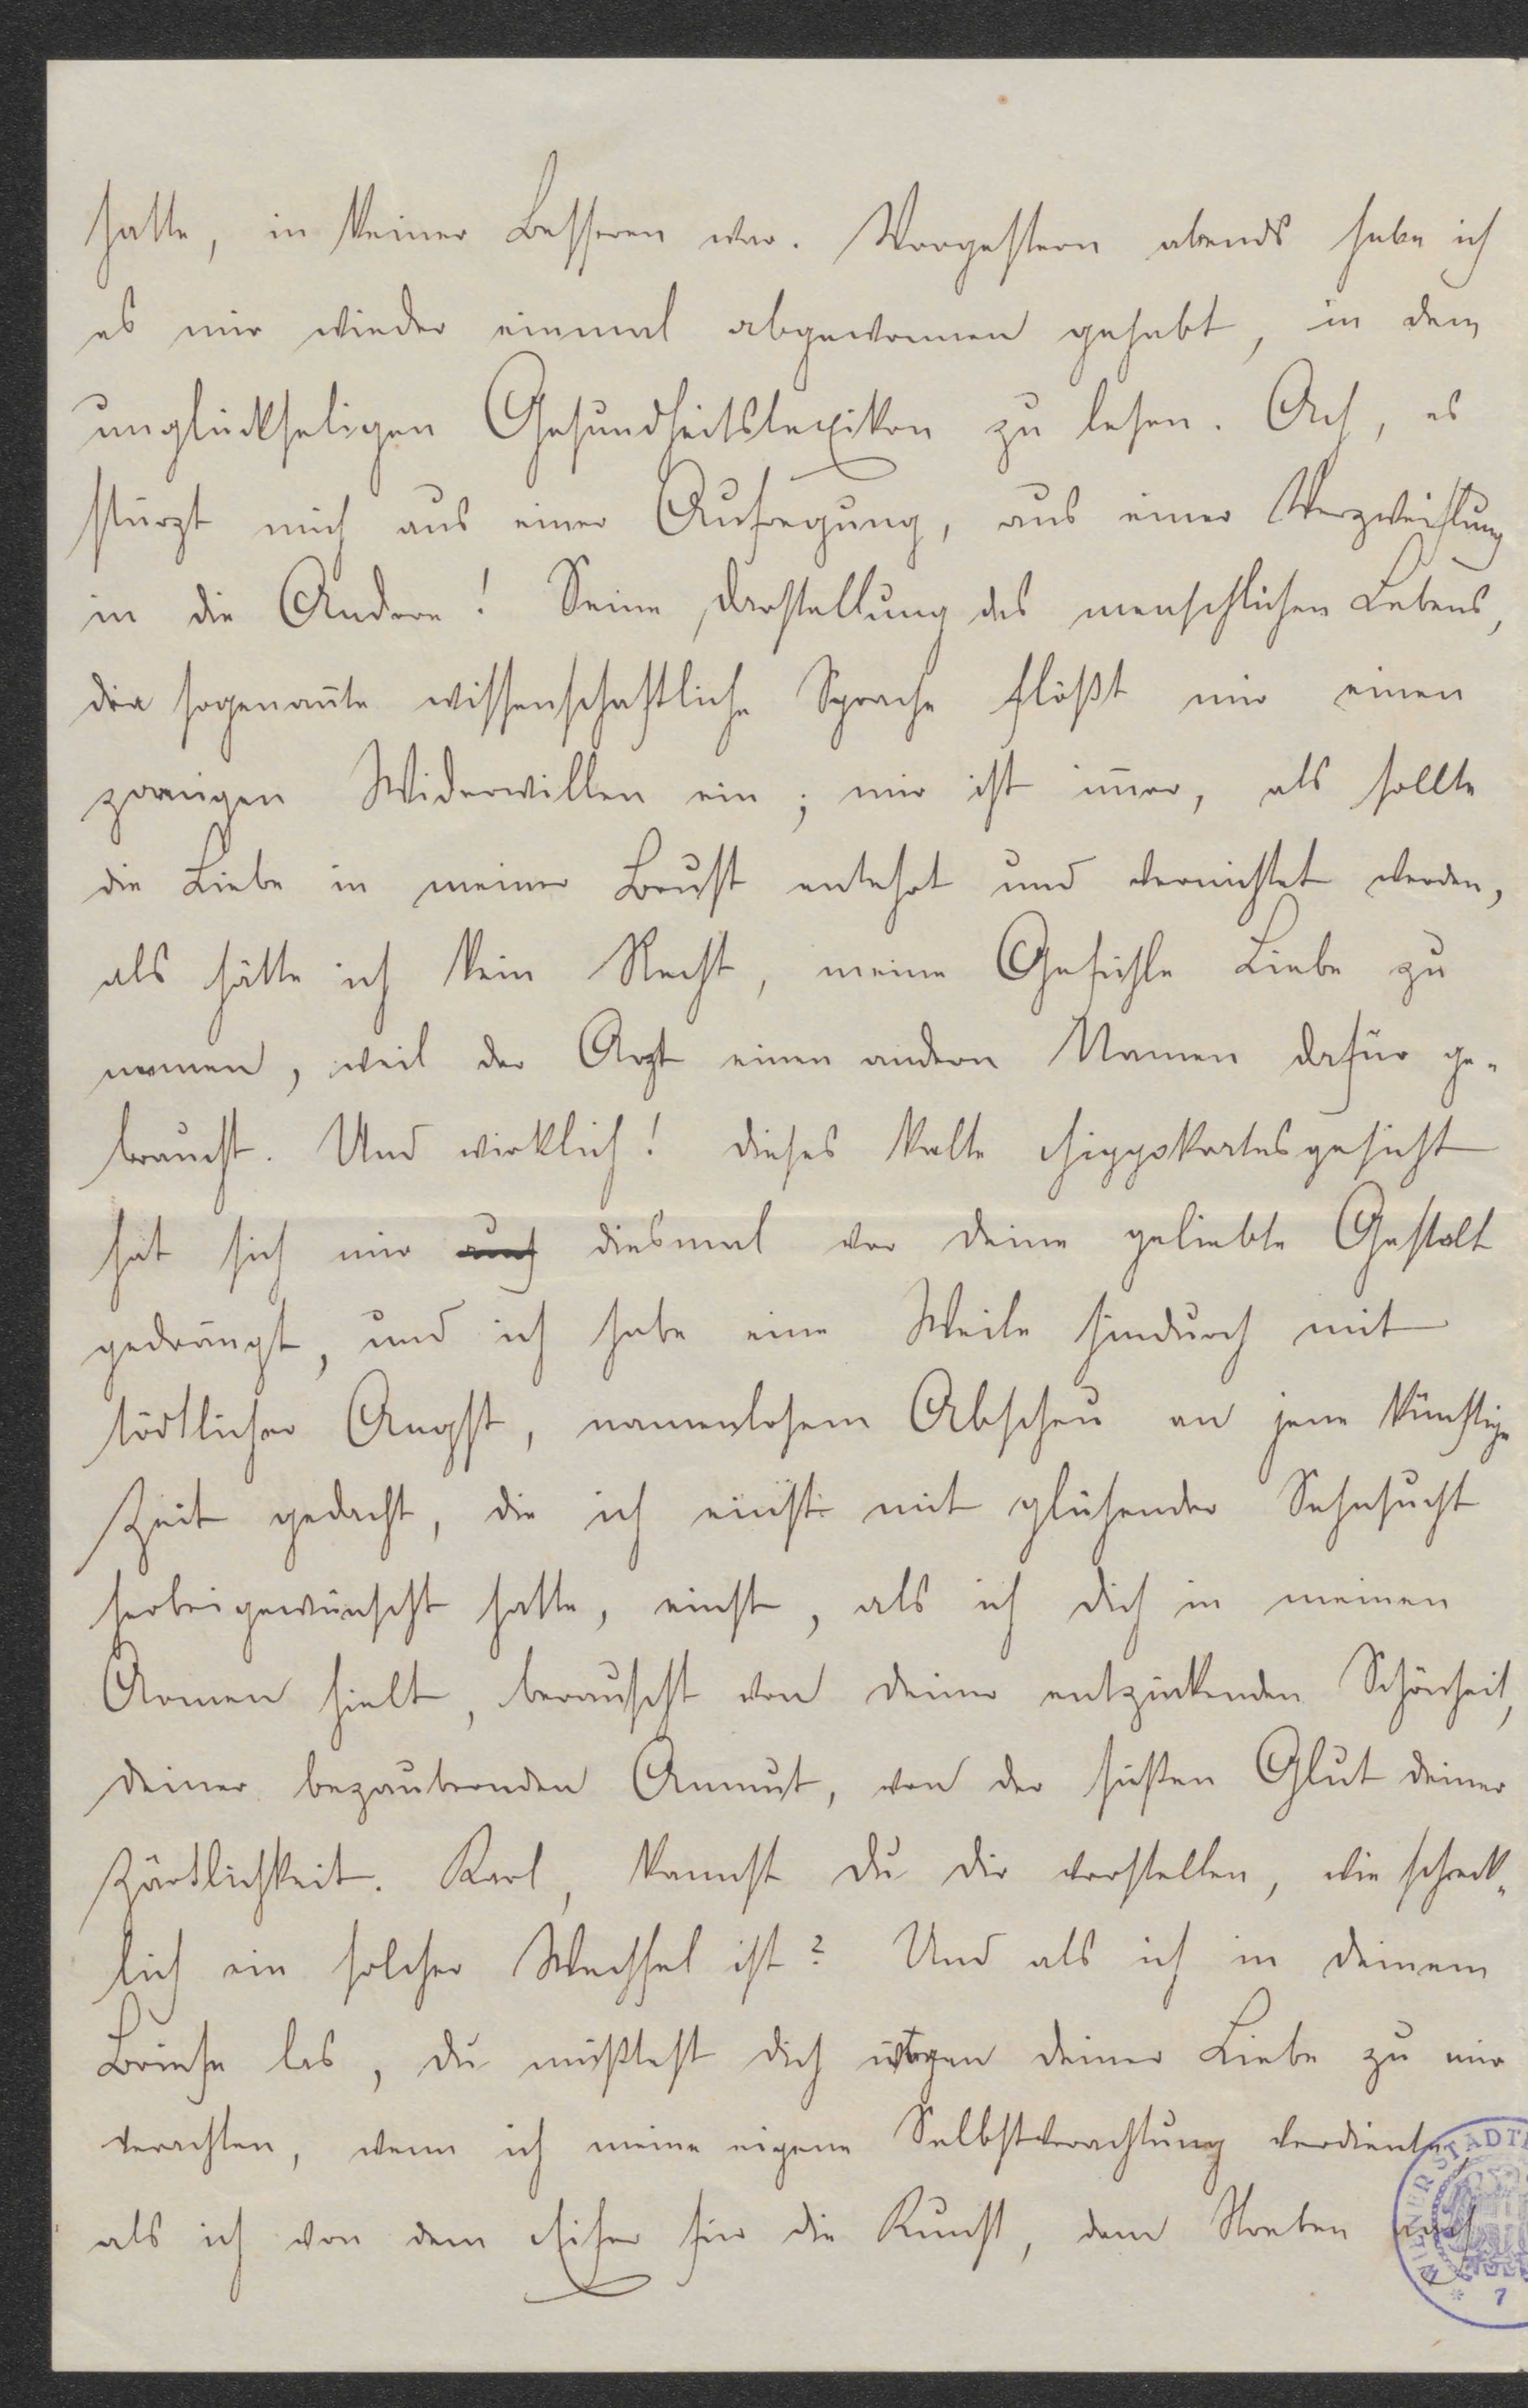 hatte, in keiner besseren war. Vorgestern abends habe ich
es mir wieder einmal abgewonnen gehabt, in dem
unglückseligen Gesundheitslexikon zu lesen. Ach, es
stürzt mich aus einer Aufregung, aus einer Verzweiflung
in die Andere! Seine Darstellung des menschlichen Lebens,
die sogenan̄te wissenschaftliche Sprache flößt mir einen
zornigen Widerwillen ein; mir ist im̄er, als sollte
die Liebe in meiner Brust entehrt und vernichtet werden,
als hätte ich kein Recht, meine Gefühle Liebe zu
nennen, weil der Arzt einen andern Namen dafür ge-
braucht. Und wirklich! dieses kalte Hippokratesgesicht
hat sich mir auch diesmal vor deine geliebte Gestalt
gedrängt, und ich habe eine Weile hindurch mit
tödtlicher Angst, namenlosem Abscheu an jene künftige
Zeit gedacht, die ich einst mit glühender Sehnsucht
herbeigewünscht hatte, einst, als ich dich in meinen
Armen hielt, berauscht von deiner entzückenden Schönheit,
deiner bezaubernden Anmut, von der süßen Glut deiner
Zärtlichkeit. Karl, kannst du dir vorstellen, wie schreck-
lich ein solcher Wechsel ist? Und als ich in deinem
Briefe las, du müßtest dich wegen deiner Liebe zu mir
verachten, wenn ich meine eigene Selbstverachtung verdiente,
als ich von dem Eifer für die Kunst, dem Streben nach
WIENER STADT
* 7